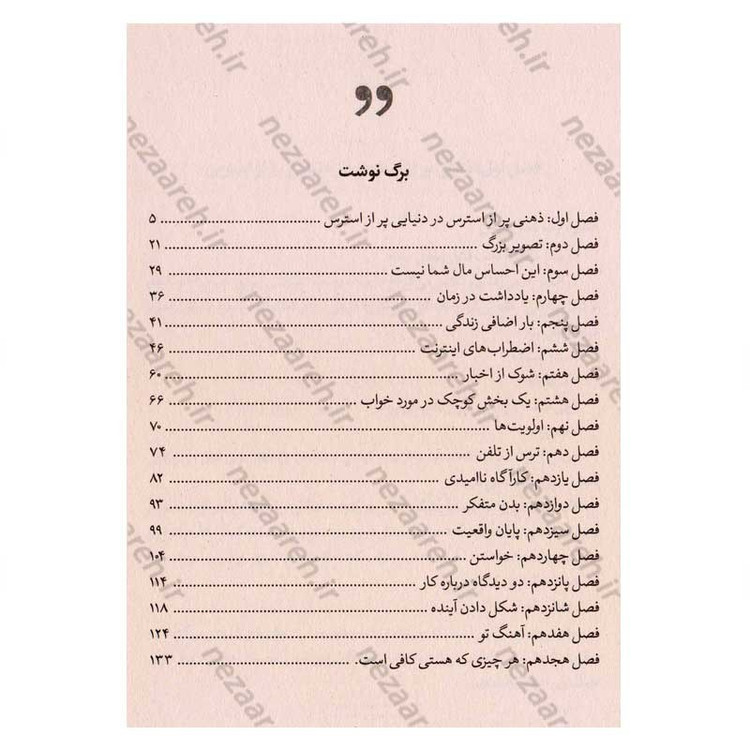 برگ نوشت
فصل اول: ذهنی پر از استرس در دنیایی پر از استرس ........ ۵
فصل دوم: تصویر بزرگ ........ ۲۱
فصل سوم: این احساس مال شما نیست ........ ۲۹
فصل چهارم: یادداشت در زمان ........ ۳۶
فصل پنجم: بار اضافی زندگی ........ ۴۱
فصل ششم: اضطراب‌های اینترنت ........ ۴۶
فصل هفتم: شوک از اخبار ........ ۶۰
فصل هشتم: یک بخش کوچک در مورد خواب ........ ۶۶
فصل نهم: اولویت‌ها ........ ۷۰
فصل دهم: ترس از تلفن ........ ۷۴
فصل یازدهم: کارآگاه ناامیدی ........ ۸۲
فصل دوازدهم: بدن متفکر ........ ۹۳
فصل سیزدهم: پایان واقعیت ........ ۹۹
فصل چهاردهم: خواستن ........ ۱۰۴
فصل پانزدهم: دو دیدگاه درباره کار ........ ۱۱۴
فصل شانزدهم: شکل دادن آینده ........ ۱۱۸
فصل هفدهم: آهنگ تو ........ ۱۲۴
فصل هجدهم: هر چیزی که هستی کافی است. ........ ۱۳۳
nezaareh.ir